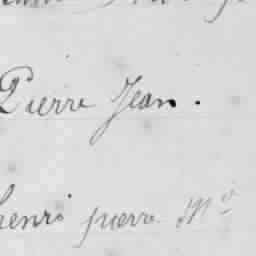 Pierre Jean.
henri pierre M